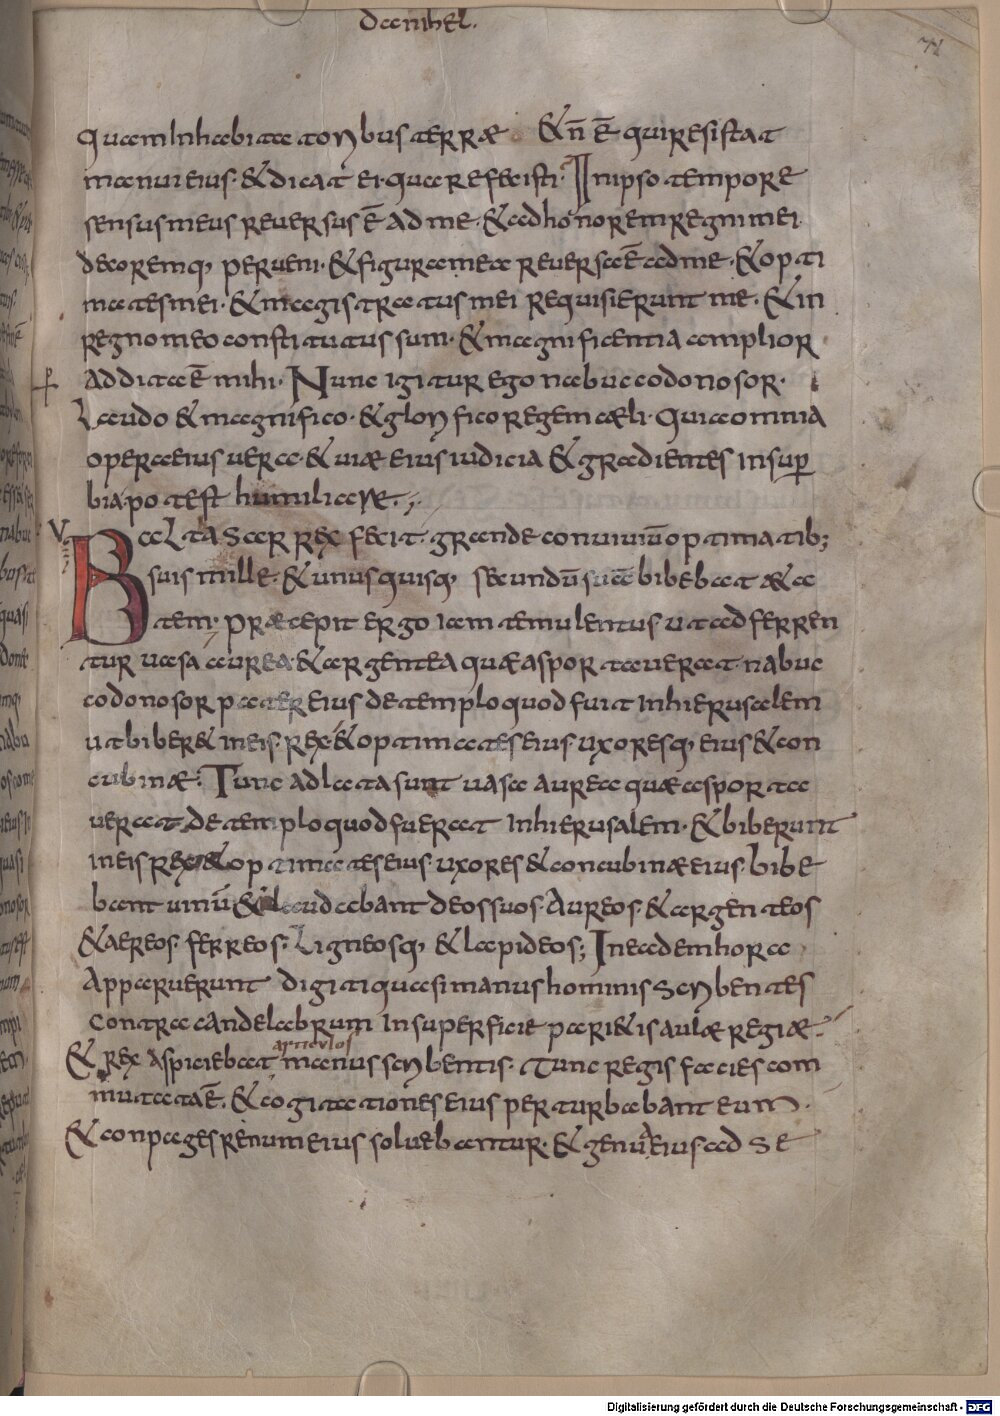 danihel.
71
quam Inhabitatoribus terrae & n̄ ē qui resistat
manui eius· & dicat ei· quare fecisti· In ipso tempore
sensus meus reuersus ē ad me· & ad honorem regni mei
decoremq, perueni· & figura mea reuersa ē ad me· & opti
mates mei· & magistratus mei requisierunt me· & in
regno meo constitutus sum· & magnificentia amplior
addita ē mihi· Nunc igitur ego nabuccodonosor·
Laudo & magnifico· & glorifico regem caeli· Quia omnia
opera eius uera· & uiae eius iudicia & gradientes In sup̱
bia potest humiliare·,
V
Baltasar rex fecit grande conuiuiū optimatib;
suis mille· & unusquisq, secundū suā bibebat aeta
tem· praecepit ergo Iam temulentus ut adferren
tur uasa aurea· & argentea quae asportauerat nabuc
codonosor pater eius de templo quod fuit In hierusalem
ut biber& in eis· rex & optimates eius· uxoresq, eius & con
cubinae· Tunc adlata sunt uasa aurea quae asporta
uerat de templo quod fuerat In hierusalem· & biberunt
in eis rex & optimates eius· uxores & concubinae eius· bibe
bant uinū & laudabant deos suos· Aureos· & argenteos
& aereos· ferreos· Ligneosq, & lapideos; In eadem hora
Apparuerunt digiti quasi manus hominis scribentes
contra candelabrum In superficie pari&is aulae regiae·
articulos
& rex aspiciebat manus scribentis· Tunc regis facies com
mutata ē· & cogitationes eius perturbabant eum·
& conpages renum eius soluebantur· & genua eius ad se
Digitalisierung gefördert durch die Deutsche Forschungsgemeinschaft - DFG